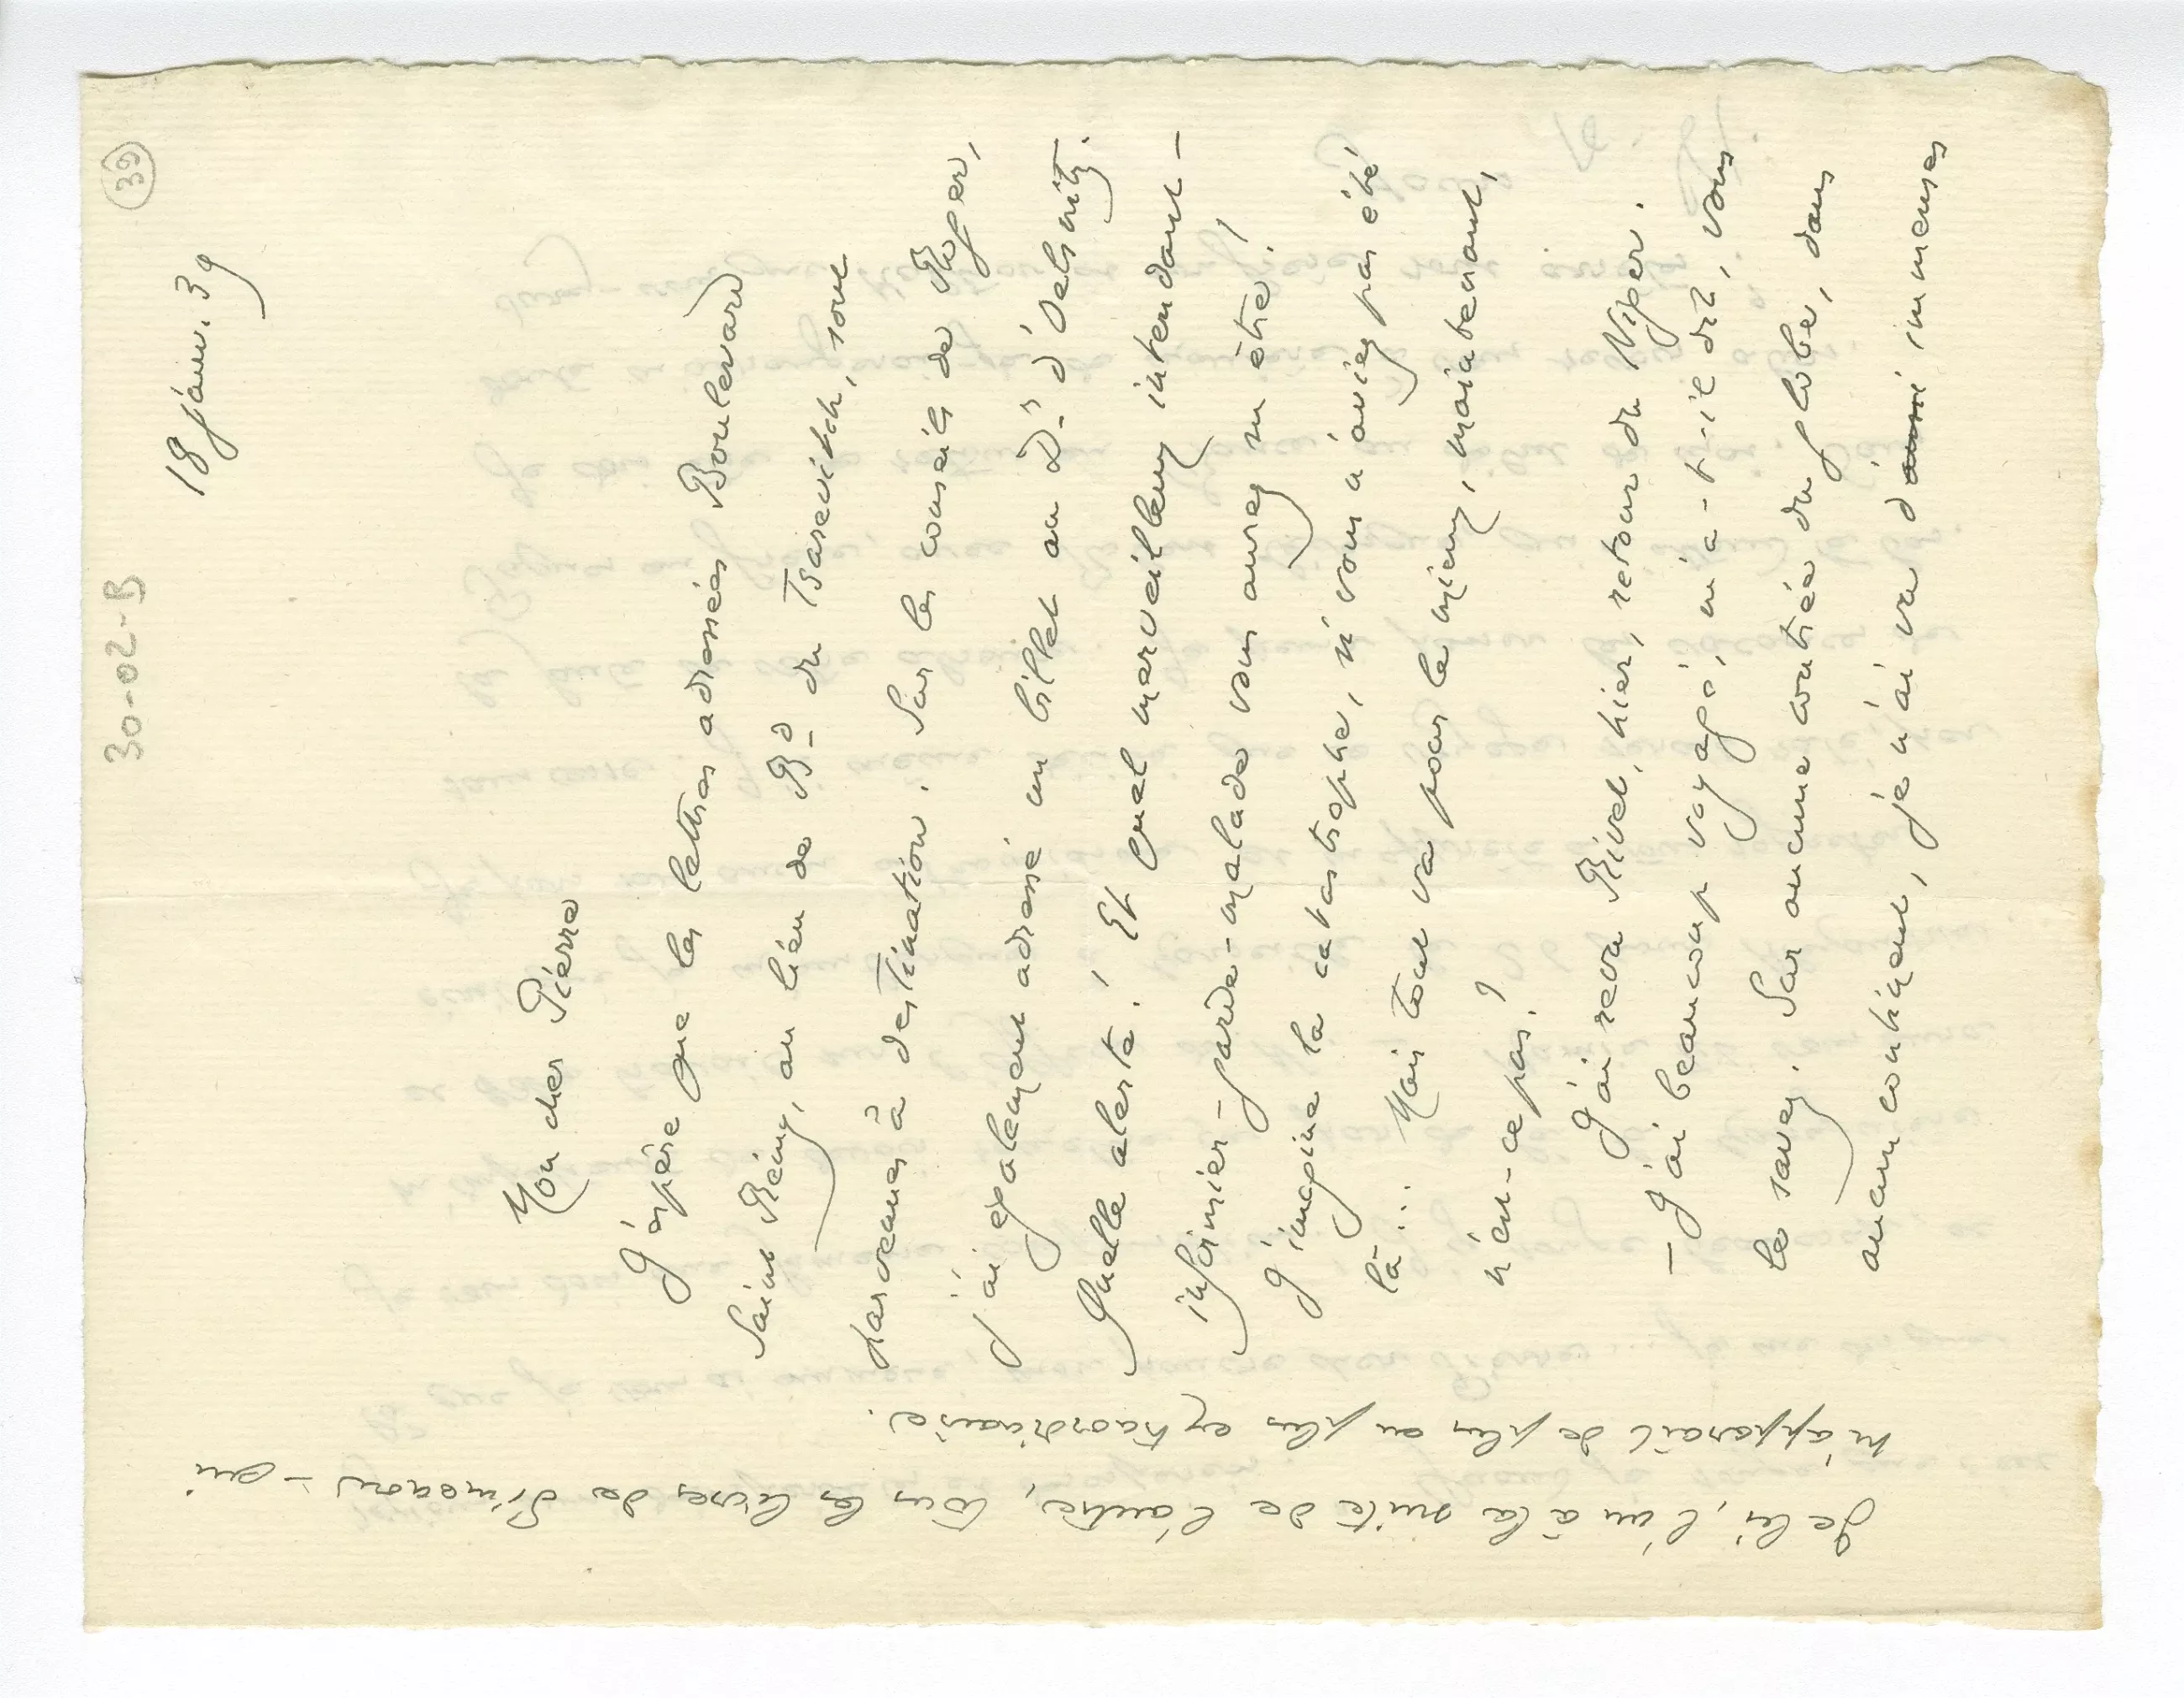 30-02-B
39
18 janv. 39
Mon cher Pierre
J'espère que les lettres adressées Boulevard
Saint Rémy, au lieu de Bd du Tsarevitch, sont
parvenues à destination. Sur les conseils de Roger,
j'ai également adressé un billet au Dr d'Oelsnitz.
Quelle alerte! Et quel merveilleux intendant-
infirmier-garde-malade vous aurez su être!
J'imagine la catastrophe, si vous n'aviez pas été
là... Mais tout va pour le mieux, maintenant,
n'est-ce pas?
J'ai revu Rivet, hier, retour du Niger.
– J'ai beaucoup voyagé, m'a-t-il dit, vous
le savez. Sur aucune contrée du globe, dans
aucun continent, je n'ai vu d'aussi immenses
Je lis, l'un à la suite de l'autre, tous les livres de Simenon – qui
m'apparait de plus en plus extraordinaire.